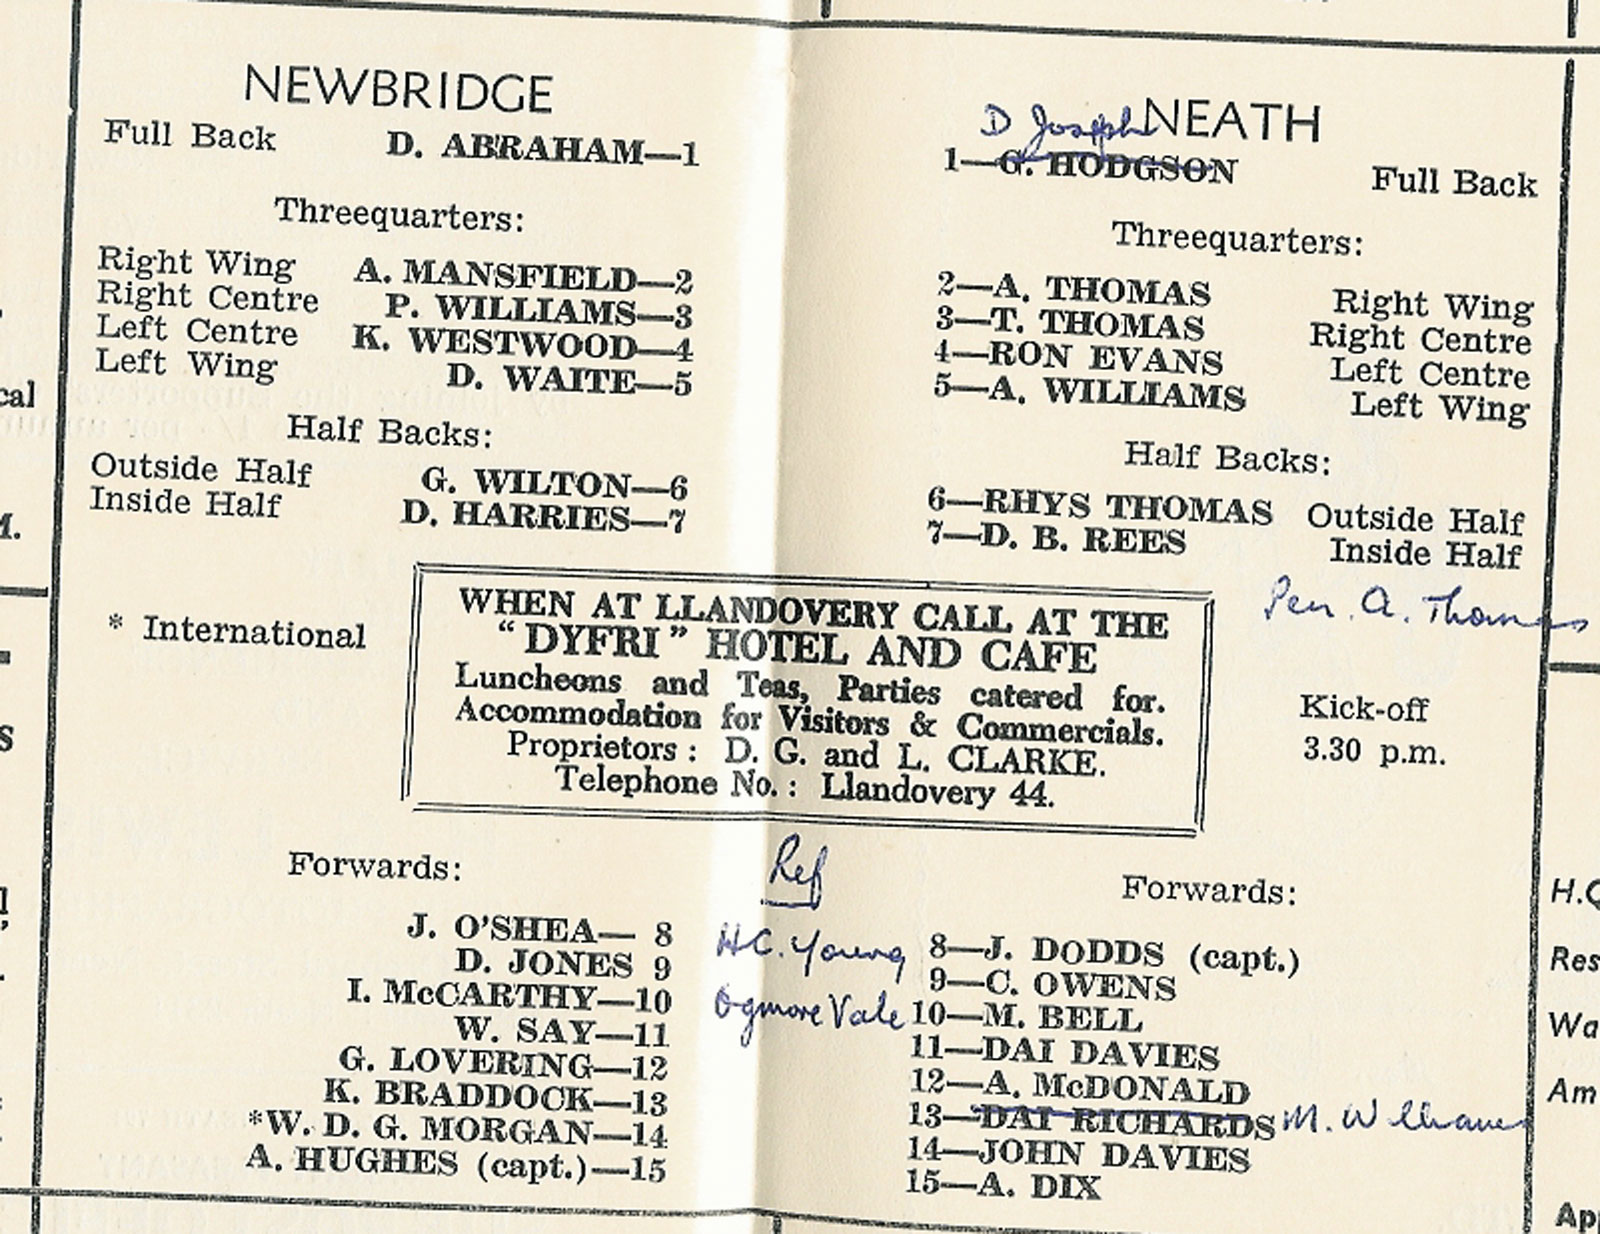 NEWBRIDGE
Full Back D. ABRAHAM—1
Threequarters:
Right Wing A. MANSFIELD—2
Right Centre P. WILLIAMS—3
Left Centre K. WESTWOOD—4
Left Wing D. WAITE—5
Half Backs:
Outside Half G. WILTON—6
Inside Half D. HARRIES—7
* International
NEATH
D Joseph
1—G. HODGSON Full Back
Threequarters:
2—A. THOMAS Right Wing
3—T. THOMAS Right Centre
4—RON EVANS Left Centre
5—A. WILLIAMS Left Wing
Half Backs:
6—RHYS THOMAS Outside Half
7—D. B. REES Inside Half
Pen. A. Thomas
WHEN AT LLANDOVERY CALL AT THE
“ DYFRI ” HOTEL AND CAFE
Luncheons and Teas, Parties catered for.
Accommodation for Visitors & Commercials.
Proprietors : D. G. and L. CLARKE.
Telephone No. : Llandovery 44.
Kick-off
3.30 p.m.
Forwards:
J. O'SHEA— 8
D. JONES 9
I. McCARTHY—10
W. SAY—11
G. LOVERING—12
K. BRADDOCK—13
*W. D. G. MORGAN—14
A. HUGHES (capt.)—15
Ref
H.C. Young
Ogmore Vale
Forwards:
8—J. DODDS (capt.)
9—C. OWENS
10—M. BELL
11—DAI DAVIES
12—A. McDONALD
13—DAI RICHARDS M. Williams
14—JOHN DAVIES
15—A. DIX